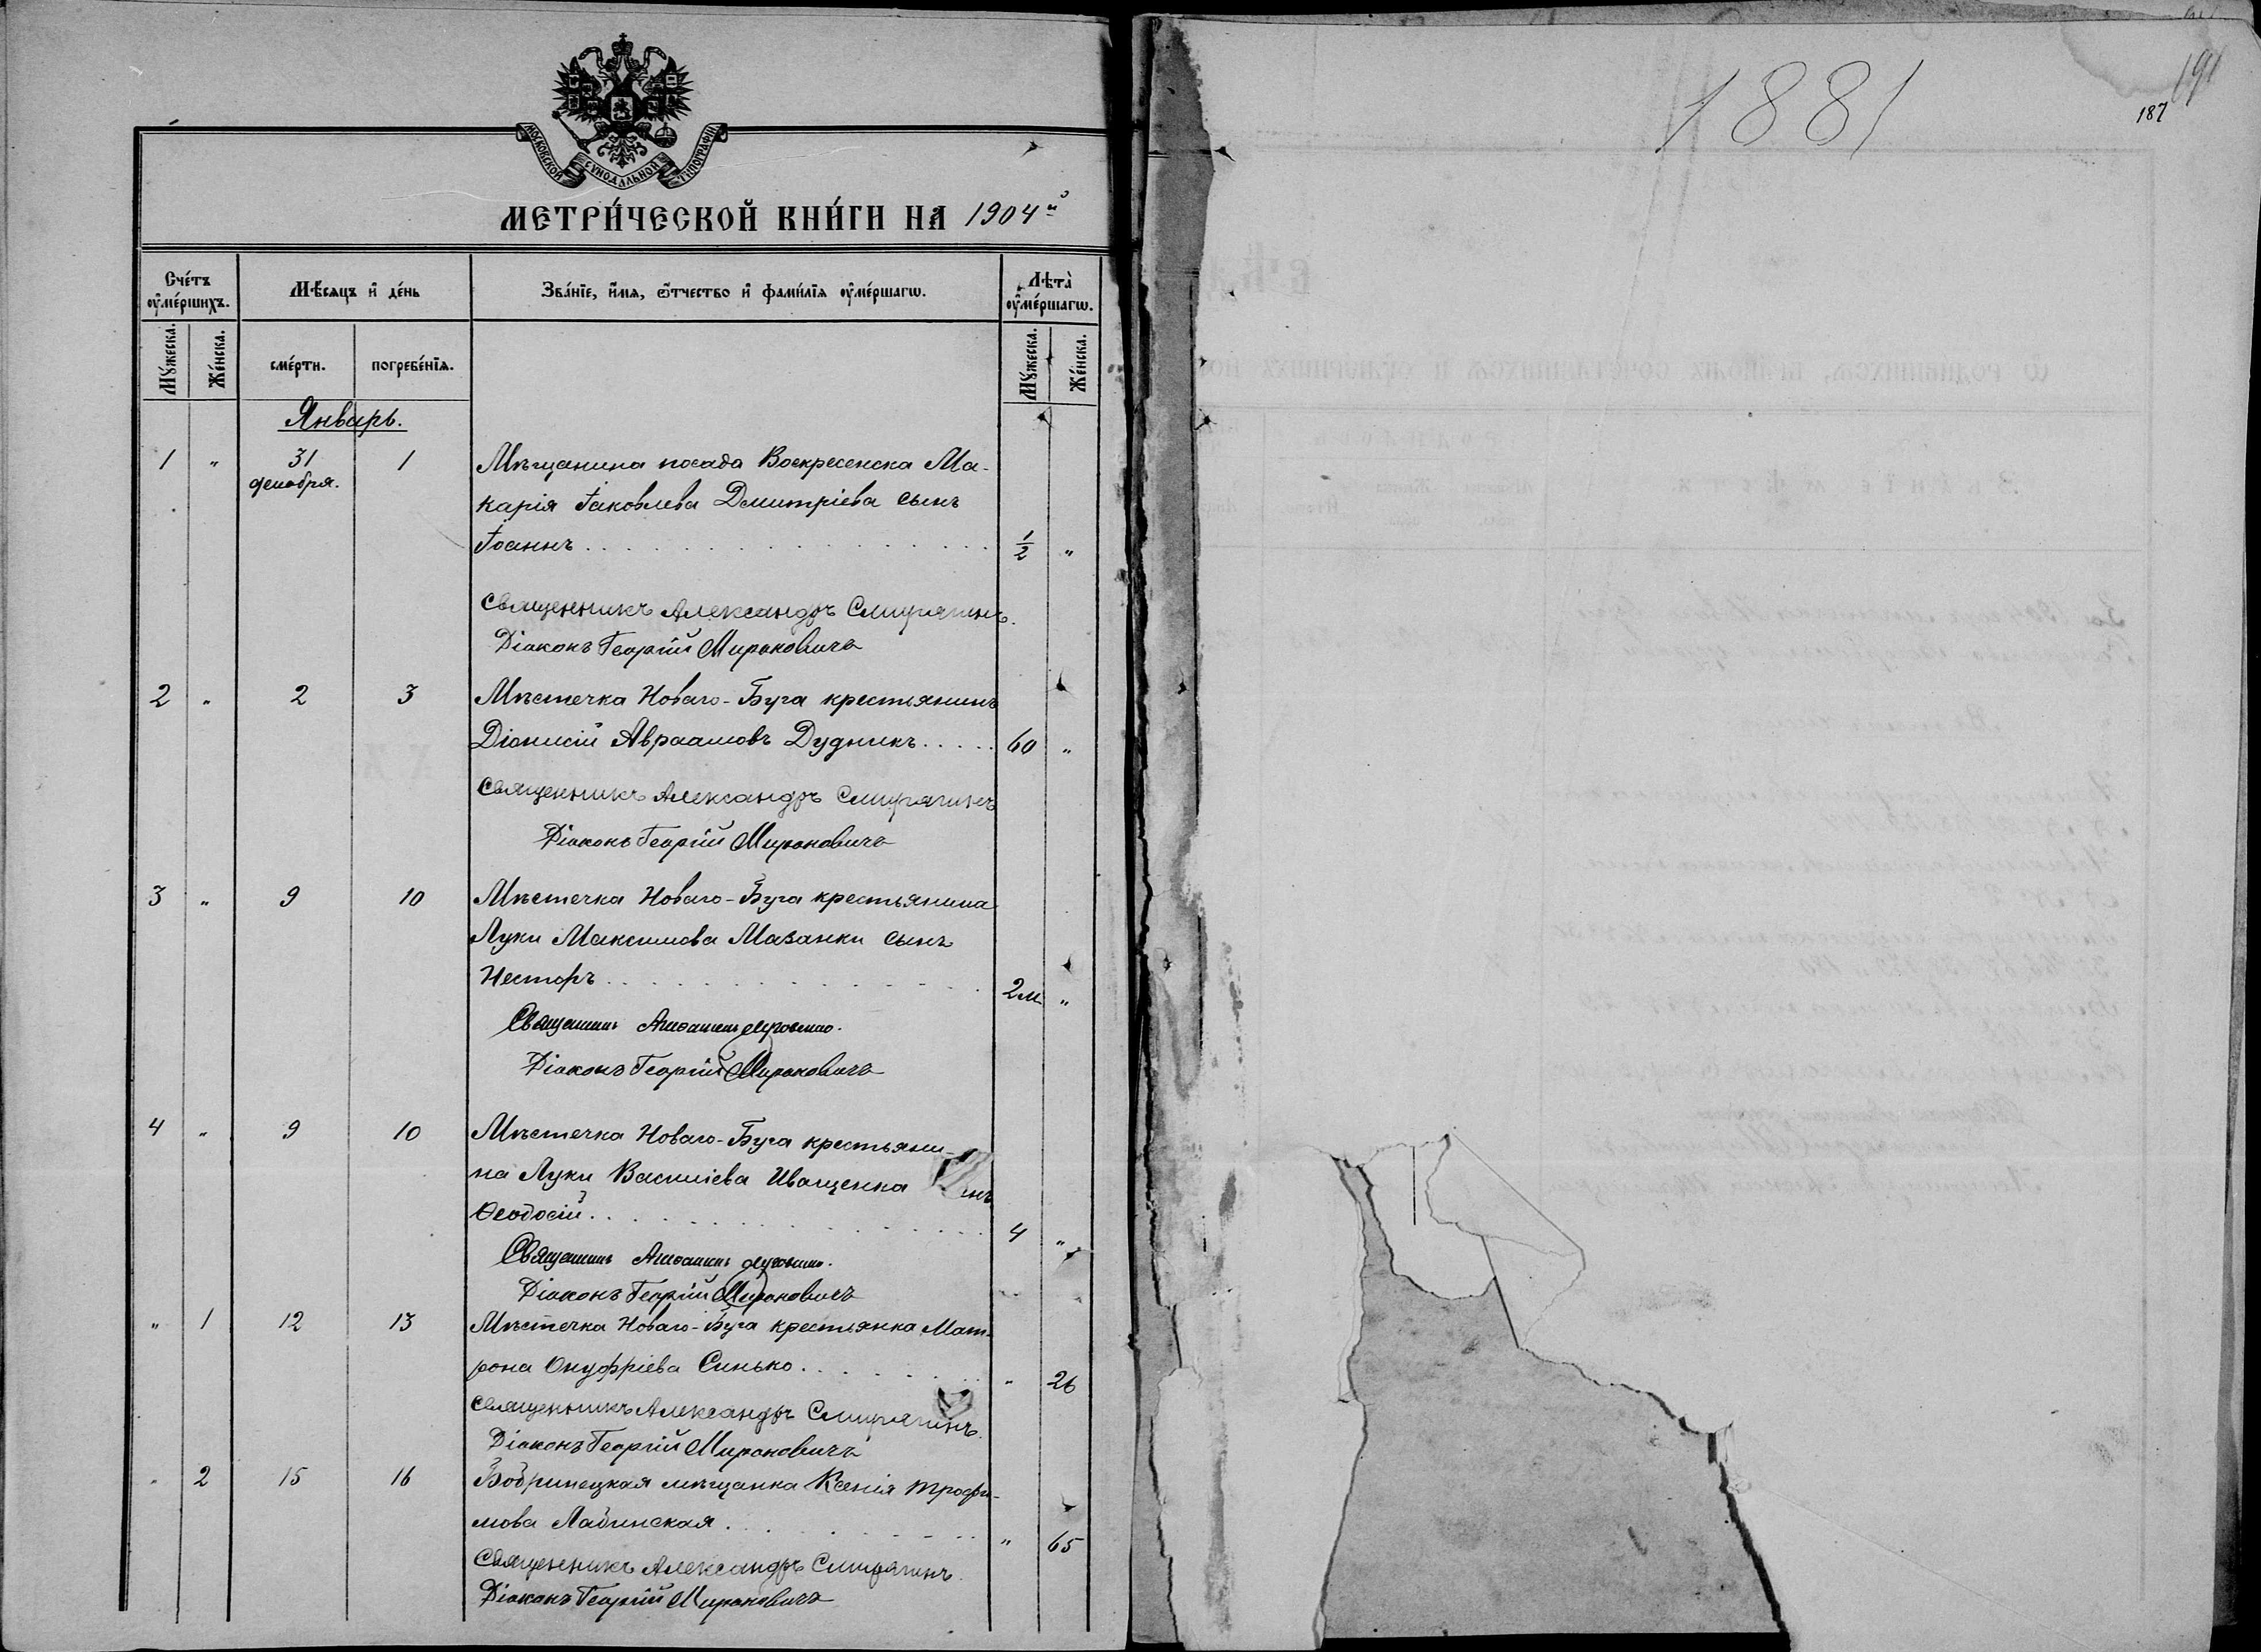 МОСКОВСКОЙ СУНОДАЛЬНОЙ ТИПОГРАФІИ
МЕТРИ́ЧЕСКОЙ КНИ́ГИ НА 1904й
Сче́тъ ᲂу҆ме́ршихъ.
Мѣ́сяцъ и҆ де́нь
Зва́нїе, и҆́мя, ѻ҆́тчество и҆ фами́лїя ᲂу҆ме́ршагѡ.
Лѣта̀ ᲂу҆ме́ршагѡ.
Мꙋ́жеска.
Же́нска.
сме́рти.
погребе́нїя.
Мꙋ́жеска.
Же́нска.
Январь.
1 " 31 декабря. 1 Мѣщанина посада Воскресенска Ма-
карія Іаковлева Дмитріева сынъ
Іоаннъ . . . 1/2 "
Священникъ Александръ Смирягинъ.
Діаконъ Георгій Мироновичъ
2 " 2 3 Мѣстечка Новаго-Буга крестьянинъ
Діонисій Авраамовъ Дудникъ . . . . . 60 "
Священникъ Александръ Смирягинъ
Діаконъ Георгій Мироновичъ
3 " 9 10 Мѣстечка Новаго-Буга крестьянина
Луки Максимова Мазанки сынъ
Несторъ . . . 2 м "
Священникъ
Діаконъ Георгій Мироновичъ
4 " 9 10 Мѣстечка Новаго-Буга крестьяни-
на Луки Василіева Иващенка
Ѳеодосій . . . 4 "
Священникъ
Діаконъ Георгій Мироновичъ
" 1 12 13 Мѣстечка Новаго-Буга крестьянка Мат-
рона Онуфріева Синько . . . " 26
Священникъ Александръ Смирягинъ.
Діаконъ Георгій Мироновичъ
" 2 15 16 Бобринецкая мѣщанка Ксенія Трофи-
мова Лабинская . . . " 65
Священникъ Александръ Смирягинъ.
Діаконъ Георгій Мироновичъ
1881
187
191